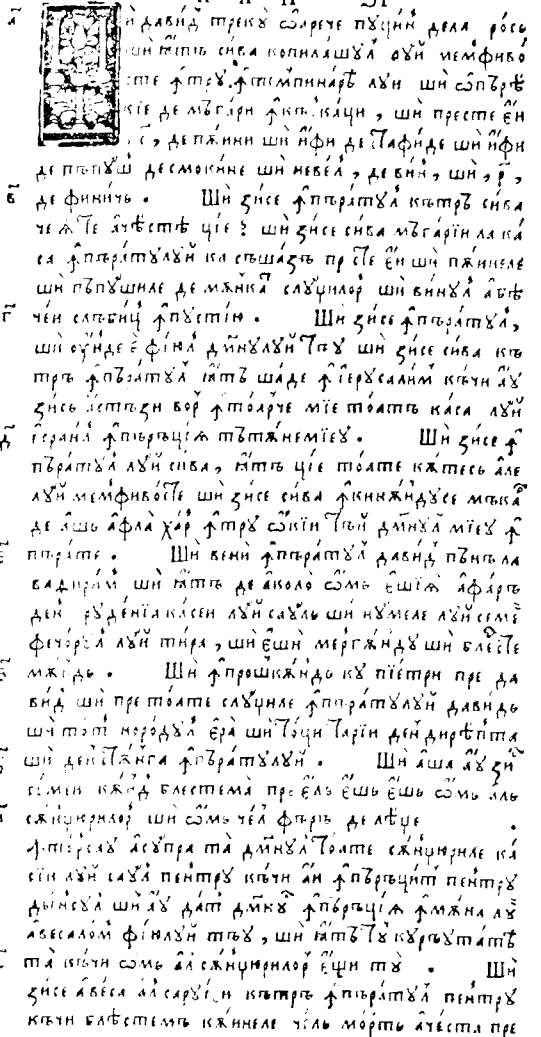 и давид трекꙋ ѡарече пꙋцин дела росъ
ши ꙗтъ сива копилашꙋл лꙋй мемфиво
сте ꙟтрꙋ ꙟтѫмпинарѣ лꙋи ши ѡпърѣ
кїе де мъгари ꙟкъркаци , ши престе єи
с҃ , де пѫини ши ифи де стафиде ши ифи
де пъпꙋш де смокине ши невел , де вин , ши , р҃ ,
де финичь . Ши зисе ꙟпъратꙋл кътръ сива
че ѫсте ачѣстѣ ціе ? ши зисе сива мъгарїи ла ка
са ꙟпъратꙋлꙋй ка съшазъ пре єи ши пѫинеле
ши пъпꙋшиле де мѫнкат слꙋџилор ши винꙋл а бѣ
чеи слъбиц ꙟпꙋстїю . Ши зисе ꙟпъратꙋл ,
ши ꙋнде є фїюл домнꙋлꙋй тъꙋ ши зисе сива къ
тръ ꙟпъратꙋл ꙗтъ шаде ꙟ їерꙋсалим къчи аꙋ
зись астъзи вор ꙟтоарче мїе тоатъ каса лꙋй
їсраил ꙟпъръціѧ тътѫнемїеꙋ . Ши зисе ꙟ
пъратꙋл лꙋй сива , ꙗтъ ціе тоате кѫтесь але
лꙋй мемфивосте ши зисе сива ꙟкинѫндꙋсе мъкат
де ашь афла хар ꙟтрꙋ ѡкїи тъй домнꙋл мїеꙋ ꙟ
пърате . Ши вени ꙟпъратꙋл давид пънъ ла
вадирам ши ꙗтъ де аколо ѡмь єшїѧ афаръ
ден рꙋденїа касеи лꙋй саꙋль ши нꙋмеле лꙋй семеи
фечорꙋл лꙋй гира , ши єши мергѫндꙋ ши блесте
мѫндь . Ши ꙟпрошкѫндь кꙋ пїетри пре да
вид ши пре тоате слꙋџиле ꙟпъратꙋлꙋй давидь
ши тот нородꙋл єра ши тоци тарїи ден дирѣпта
ши ден стѫнга ꙟпъратꙋлꙋй . Ши аша аꙋ зис
семеи кѫнд блестема пре єль єшь єшь ѡмь аль
сѫнџюрилор ши ѡмь чел фъръ де леџе .
Ꙟторсаꙋ асꙋпра та домнꙋл тоате сѫнџюриле ка
сїи лꙋй саꙋл пентрꙋ къчи аи ꙟпъръцит пентрꙋ
дынсꙋл ши аꙋ дат домнꙋл ꙟпъръціѧ ꙟмѫна лꙋй
авесалом фїюлꙋй тъꙋ , ши ꙗтъ тꙋ кꙋ ръꙋтатѣ
та къчи ѡмь ал сѫнџюрилор єщи тꙋ . Ши
зисе авеса ал сарꙋеи кътръ ꙟпъратꙋл пентрꙋ
къчи блѣстемъ кѫинеле чель морть ачеста пре